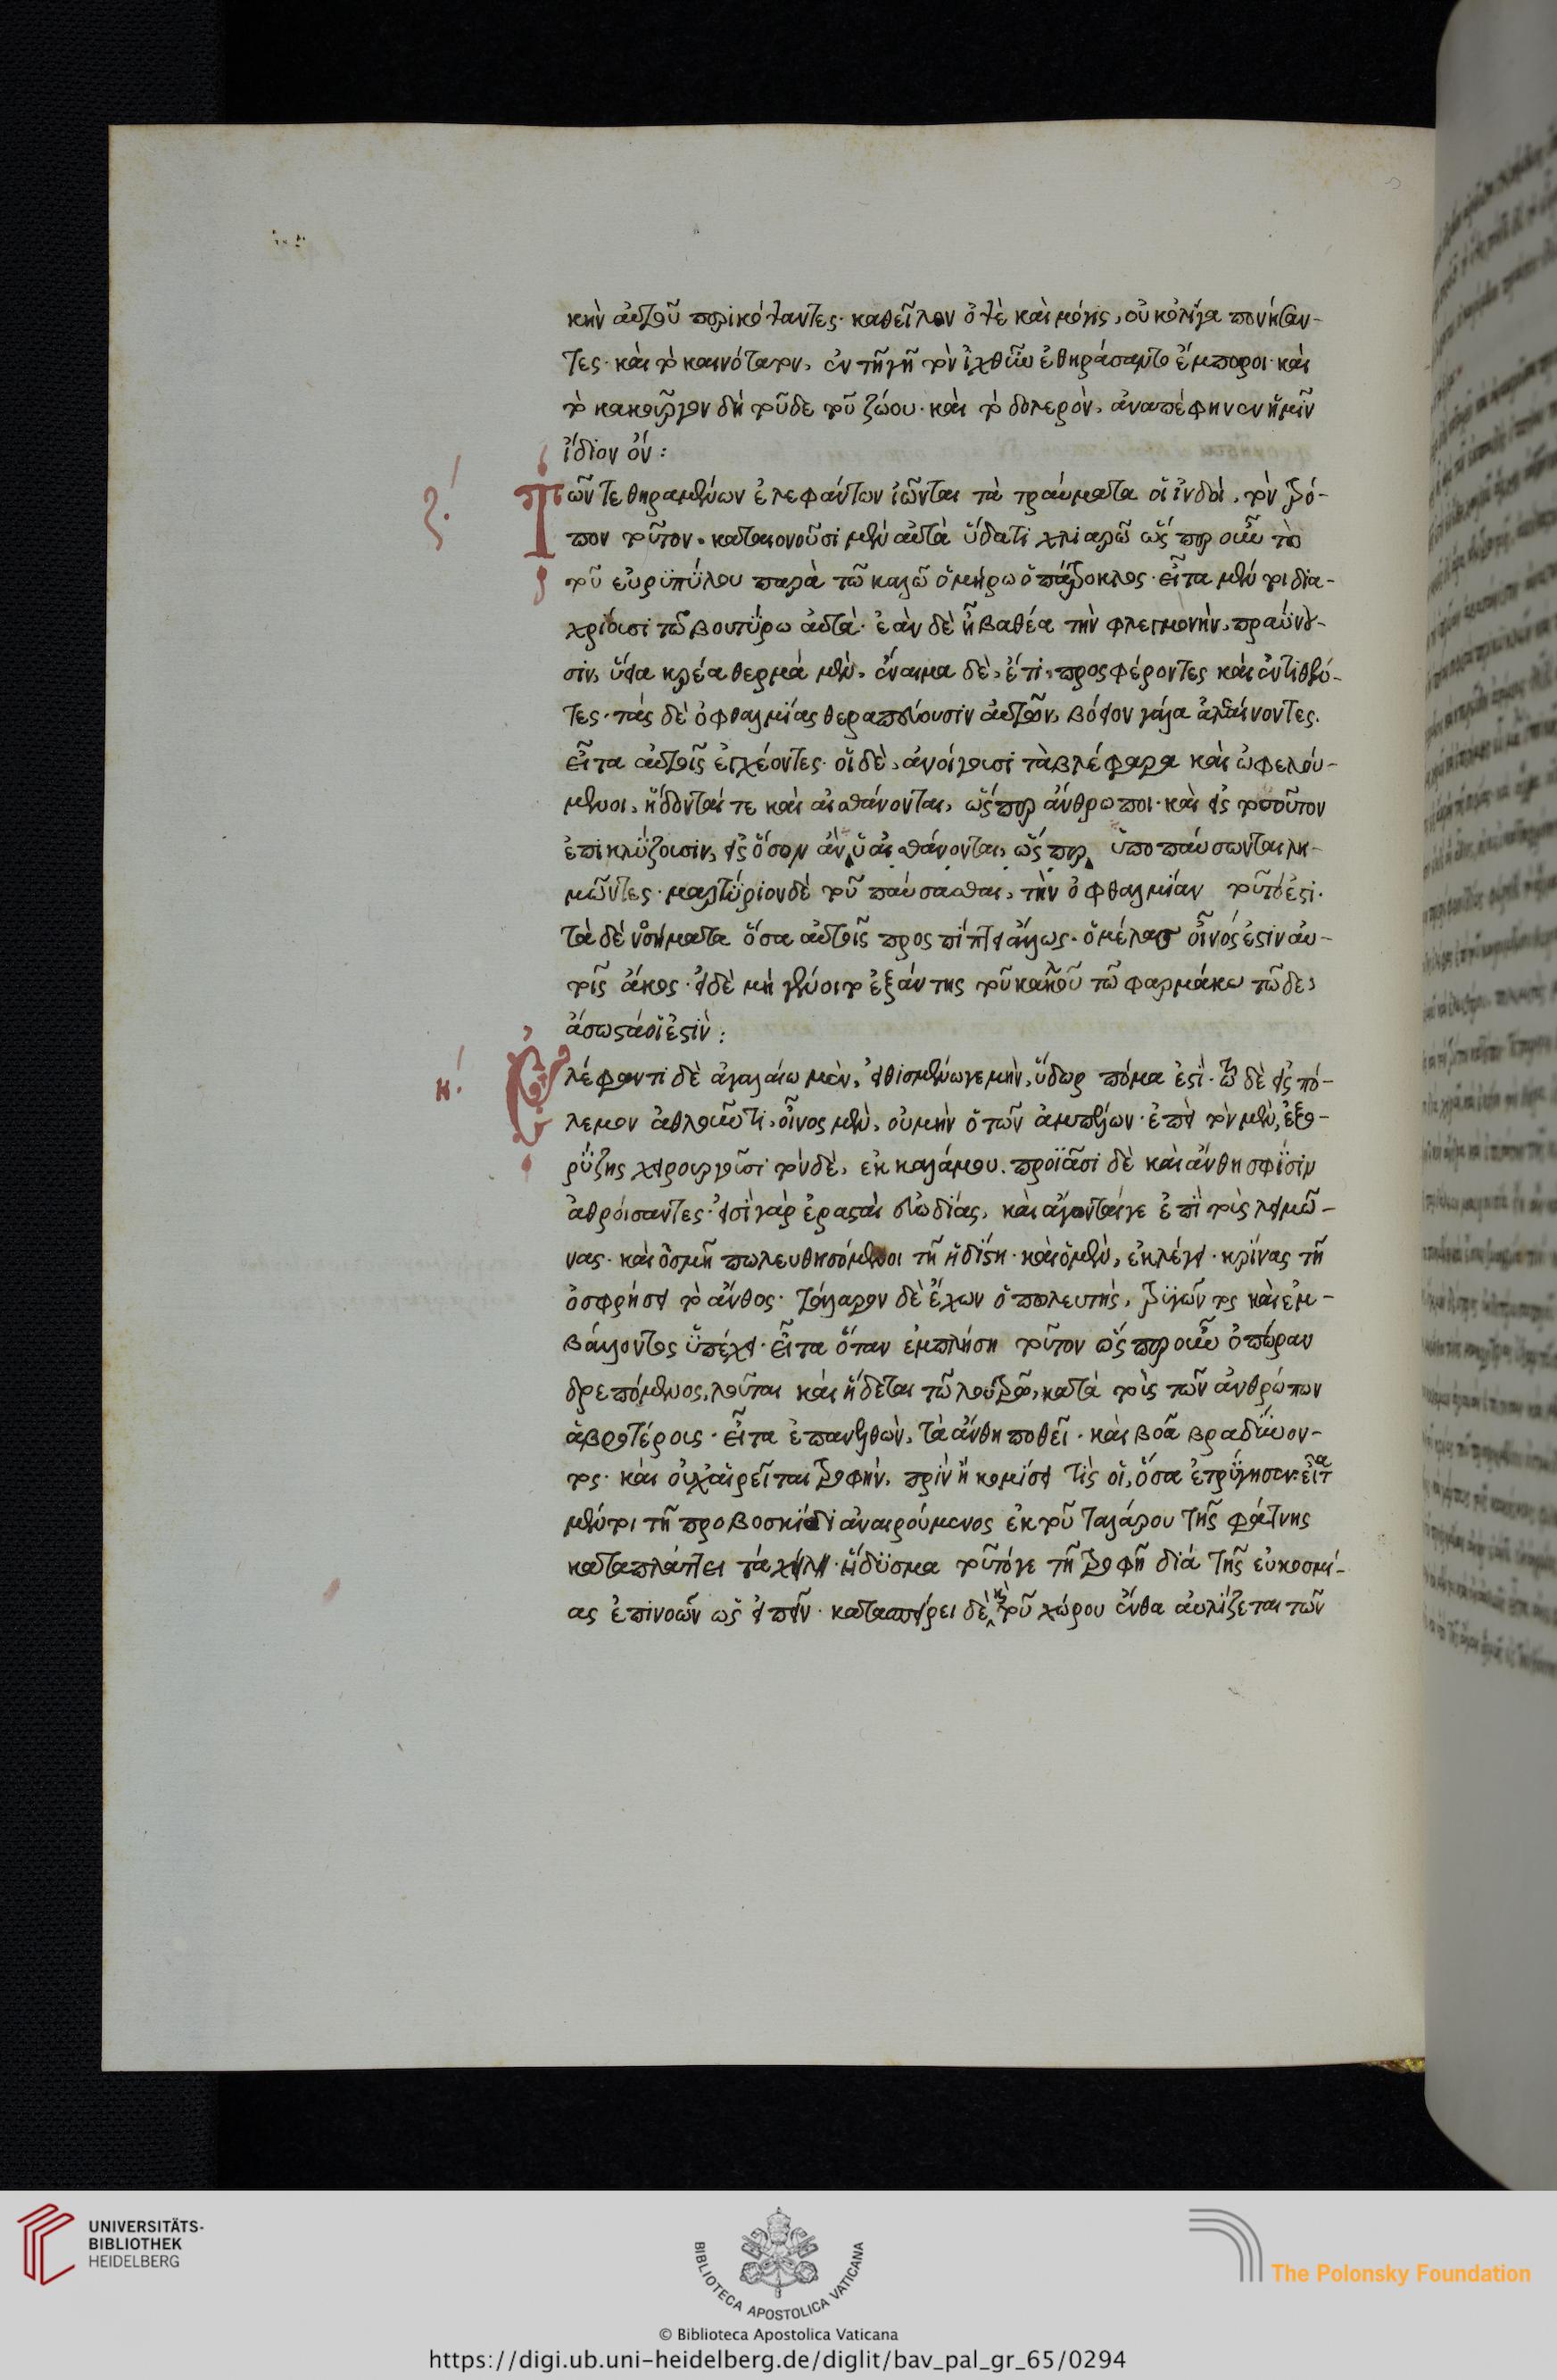 κην αὐτοῦ περικόψαντες· καθεῖλον ὀψὲ καὶ μόγις, οὐκ ὀλίγα πονήσαν-
τες· καὶ τὸ καινότατον, ἐν τῇ γῇ τὸν ἰχθῦν ἐθηράσαντο ἔμποροι· καὶ
τὸ κακοῦργον δὴ τοῦδε τοῦ ζώου· καὶ τὸ δολερὸν, ἀναπέφηνεν ἡμῖν
ἴδιον ὄν:
ζ´.
Τῶν τε θηραμένων ἐλεφάντων ἰῶνται τὰ τραύματα οἱ ἰνδοὶ, τὸν τρό-
πον τοῦτον· καταιονοῦσι μὲν αὐτὰ ὕδατι χλιαρῷ ὥσπερ οὖν τὸ
τοῦ εὐρϋπΰλου παρὰ τῷ καλῷ ὁμήρω ὁ πάτροκλος· εἶτα μέντοι δια-
χρίουσι τῷ βουτύρω αὐτά· ἐὰν δὲ ᾖ βαθέα τὴν φλεγμονὴν, πραΰνου-
σιν, ὕεια κρέα θερμὰ μὲν, ἔναιμα δὲ, ἔτι, προσφέροντες καὶ ἐντιθέν-
τες· τὰς δὲ ὀφθαλμίας θεραπεύουσιν αὐτῶν, βόειον γάλα ἀλεαίνοντες.
εἶτα αὐτοῖς ἐγχέοντες· οἱ δὲ, ἀνοίγουσι τὰ βλέφαρα καὶ ὠφελού-
μενοι, ἥδονταί τε καὶ αἰσθάνονται, ὥσπερ ἄνθρωποι· καὶ εἰς τοσοῦτον
ἐπικλύζουσιν, εἰς ὅσον ἂν, οὐ αἰσθάνονται, ὥσπερ ὑποπαύσωνται λη-
μῶντες· μαρτΰριον δὲ τοῦ παύσασθαι, τὴν ὀφθαλμίαν τοῦτό ἐστι.
τὰ δὲ νοσήματα ὅσα αὐτοῖς προσπίπτει ἄλλως· ὁ μέλας οἶνός ἐστιν αὐ-
τοῖς ἄκος· εἰ δὲ μὴ γένοιτο ἐξάντης τοῦ κακοῦ τῷ φαρμάκω τῷδε,
ἄσωστά οἵ ἐστὶν:
η´.
Ἐλέφαντι δὲ ἀγελαίω μὲν, εἰθισμένω γε μὴν, ὕδωρ πόμα ἐστί· τῷ δὲ εἰς πό-
λεμον ἀθλοῦντι, οἶνος μὲν, οὐ μὴν ὁ τῶν ἀμπέλων· ἐπεὶ τὸν μὲν, ἐξ ο-
ρΰζης χειρουργοῦσι τὸν δὲ, ἐκ καλάμου. προϊᾶσι δὲ καὶ ἄνθη σφίσιν
ἀθροίσαντες· εἰσὶ γὰρ ἐρασταὶ εὐωδίας, καὶ ἄγονταί γε ἐπὶ τοὺς λειμῶ-
νας· καὶ ὀσμῇ πωλευθησόμενοι τῇ ἡδίστη· καὶ ὁ μὲν, ἐκλέγει· κρίνας τῇ
ὀσφρήσει τὸ ἄνθος· τάλαρον δὲ ἔχων ὁ πωλευτὴς, τρυγῶντος καὶ ἐμ-
βάλλοντος ὑπέχει· εἶτα ὅταν ἐμπλήση τοῦτον ὥσπερ οὖν ὀπώραν
δρεπόμενος, λοῦται καὶ ἥδεται τῷ λουτρῷ, κατὰ τοὺς τῶν ἀνθρώπων
ἁβροτέρους· εἶτα ἐπανελθὼν, τὰ ἄνθη ποθεῖ· καὶ βοᾷ βραδύνον-
τος· καὶ οὐχ αἱρεῖται τροφὴν, πρὶν ἢ κομίσει τίς οἱ, ὅσα ἐτρΰγησεν· εἶτα
μέντοι τῇ προβοσκίδι ἀναιρούμενος ἐκ τοῦ ταλάρου τῆς φάτνης
καταπλάττει τὰ χείλη· ἥδϋσμα τοῦτό γε τῇ τροφῇ διὰ τῆς εὐκοσμί-
ας ἐπινοῶν ὡς εἰπεῖν· κατασπείρει δὲ καὶ τοῦ χώρου ἔνθα αὐλίζεται τῶν
UNIVERSITÄTS-
BIBLIOTHEK
HEIDELBERG
BIBLIOTECA APOSTOLICA VATICANA
The Polonsky Foundation
© Biblioteca Apostolica Vaticana
https://digi.ub.uni-heidelberg.de/diglit/bav_pal_gr_65/0294